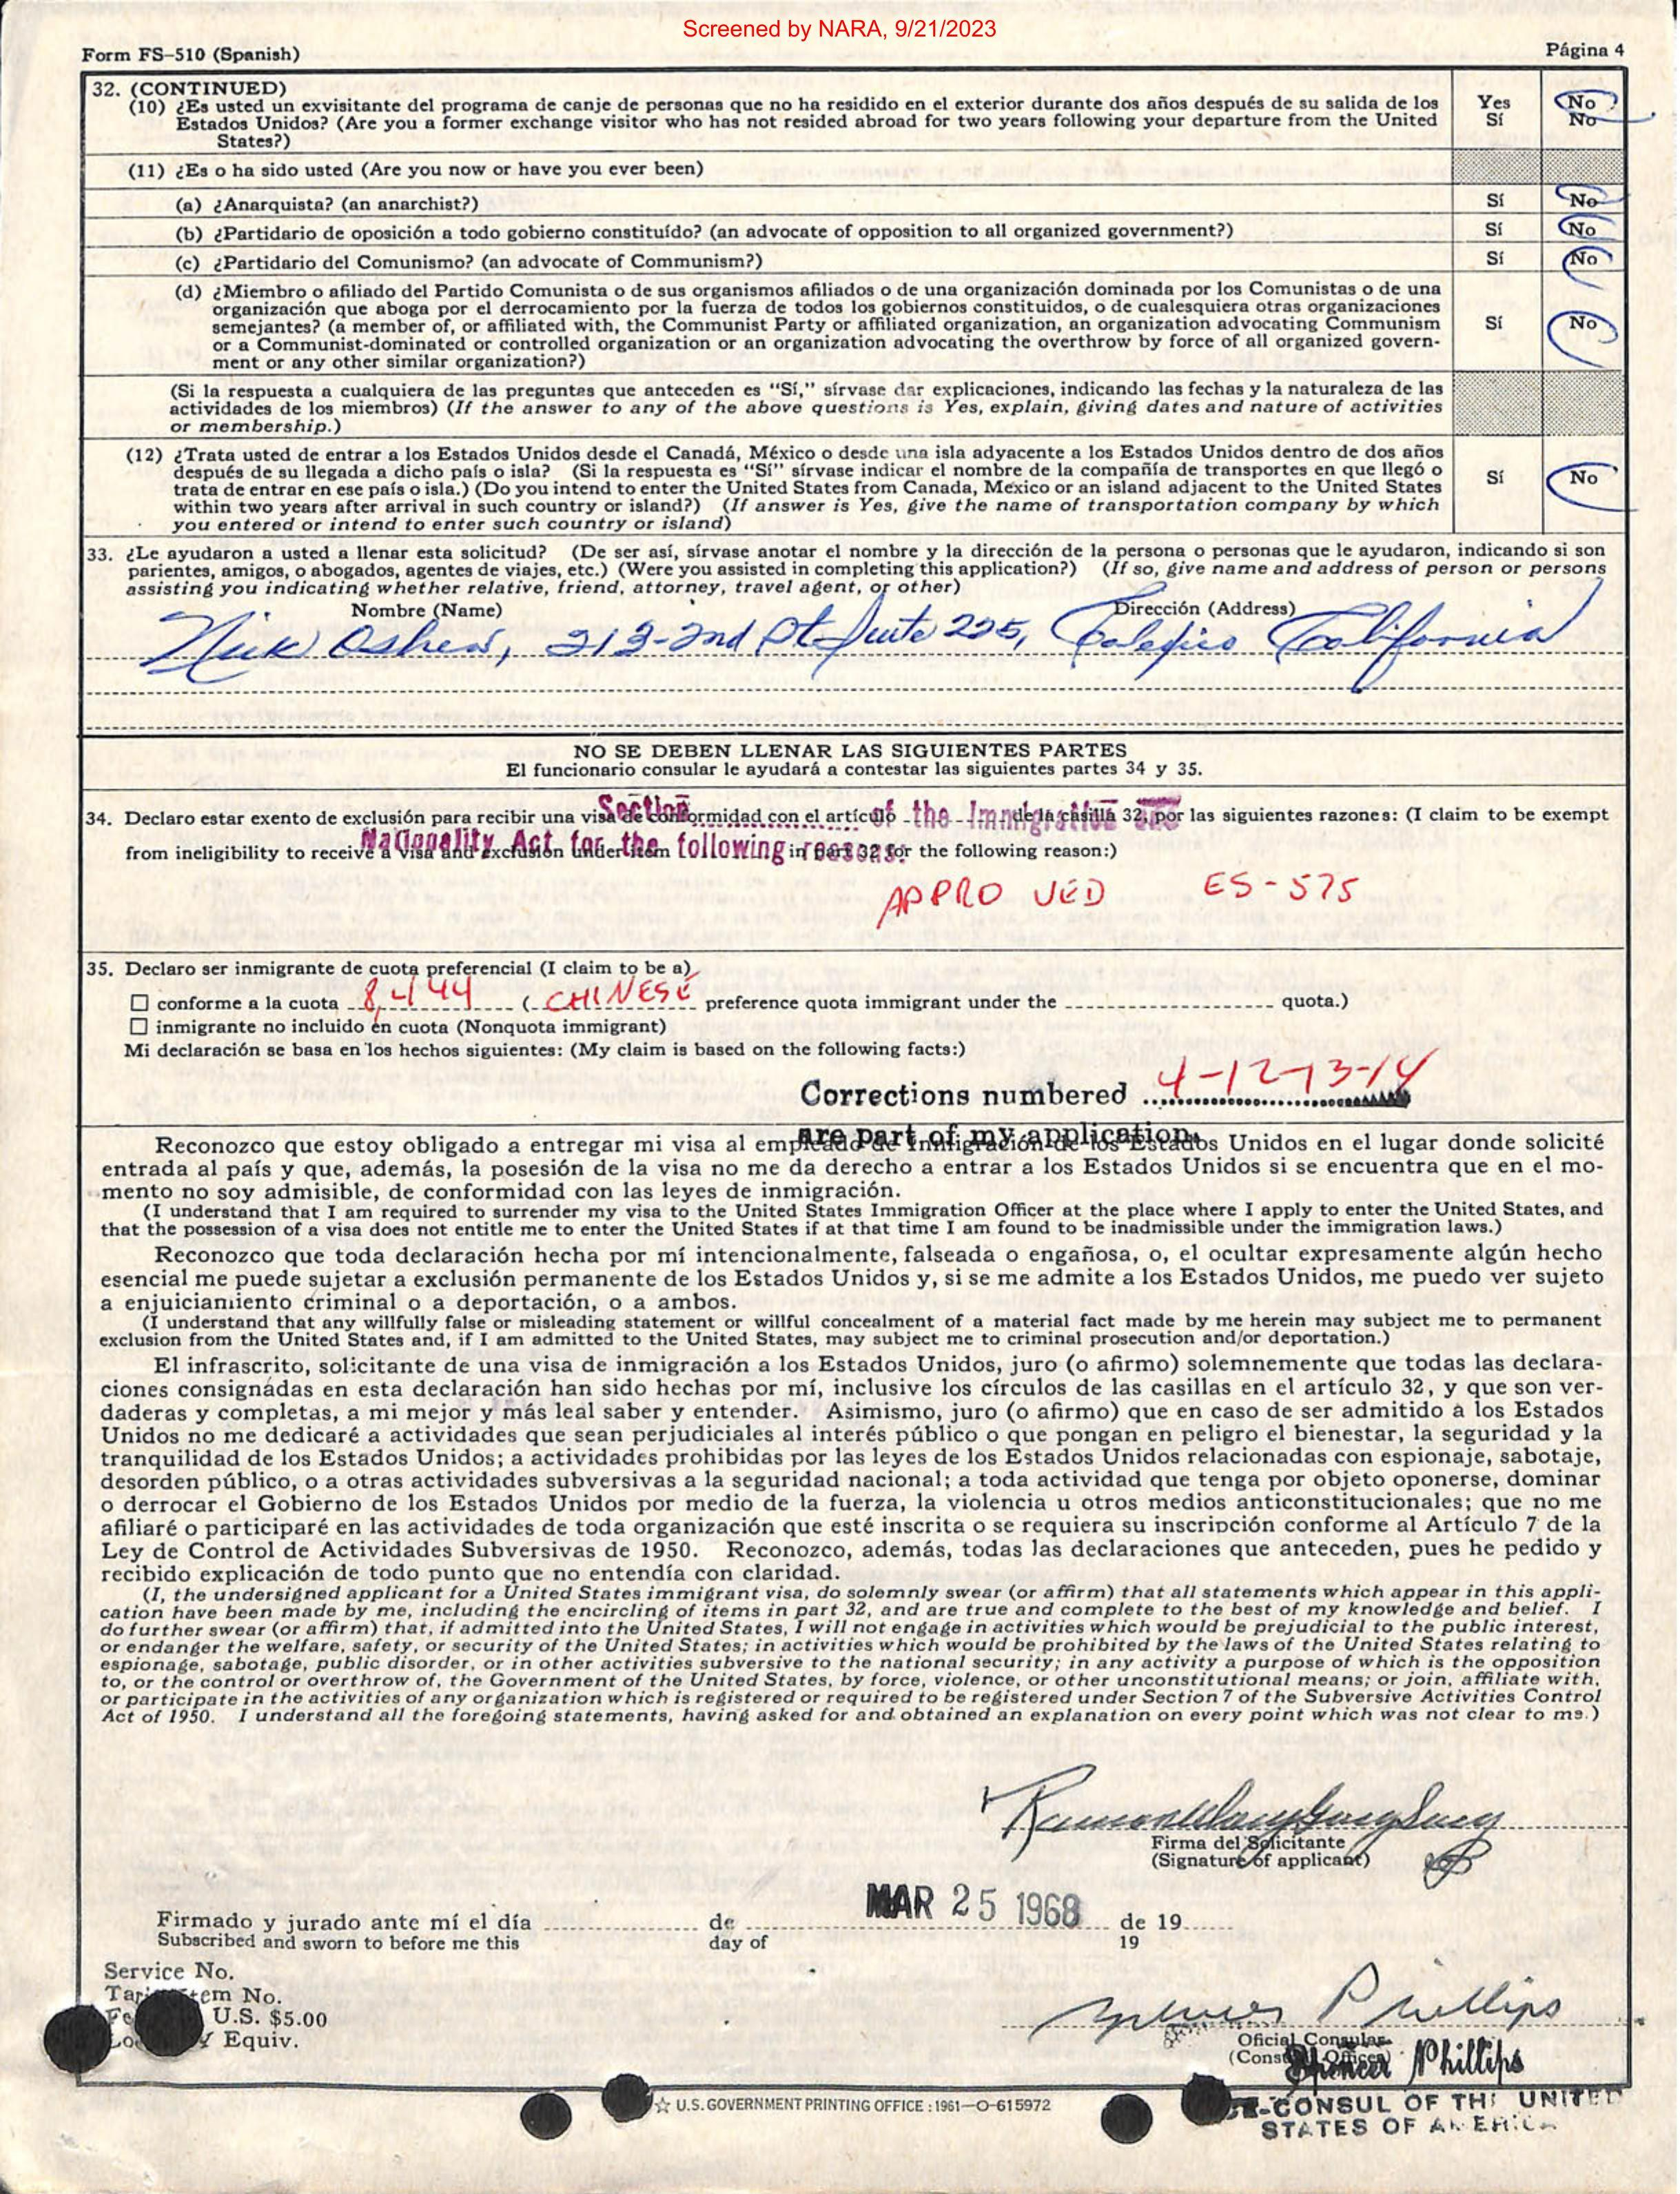 Screened by NARA, 9/21/2023
Form FS-510 (Spanish)
Página 4
32. (CONTINUED)
(10) ¿Es usted un exvisitante del programa de canje de personas que no ha residido en el exterior durante dos años después de su salida de los
Estados Unidos? (Are you a former exchange visitor who has not resided abroad for two years following your departure from the United
States?)
Yes No
Sí No
(11) ¿Es o ha sido usted (Are you now or have you ever been)
(a) ¿Anarquista? (an anarchist?) Sí No
(b) ¿Partidario de oposición a todo gobierno constituído? (an advocate of opposition to all organized government?) Sí No
(c) ¿Partidario del Comunismo? (an advocate of Communism?) Sí No
(d) ¿Miembro o afiliado del Partido Comunista o de sus organismos afiliados o de una organización dominada por los Comunistas o de una
organización que aboga por el derrocamiento por la fuerza de todos los gobiernos constituidos, o de cualesquiera otras organizaciones
semejantes? (a member of, or affiliated with, the Communist Party or affiliated organization, an organization advocating Communism
or a Communist-dominated or controlled organization or an organization advocating the overthrow by force of all organized govern-
ment or any other similar organization?)
Sí No
(Si la respuesta a cualquiera de las preguntas que anteceden es "Sí," sírvase dar explicaciones, indicando las fechas y la naturaleza de las
actividades de los miembros) (If the answer to any of the above questions is Yes, explain, giving dates and nature of activities
or membership.)
(12) ¿Trata usted de entrar a los Estados Unidos desde el Canadá, México o desde una isla adyacente a los Estados Unidos dentro de dos años
después de su llegada a dicho país o isla? (Si la respuesta es "Sí" sírvase indicar el nombre de la compañía de transportes en que llegó o
trata de entrar en ese país o isla.) (Do you intend to enter the United States from Canada, Mexico or an island adjacent to the United States
within two years after arrival in such country or island?) (If answer is Yes, give the name of transportation company by which
you entered or intend to enter such country or island)
Sí No
33. ¿Le ayudaron a usted a llenar esta solicitud? (De ser así, sírvase anotar el nombre y la dirección de la persona o personas que le ayudaron, indicando si son
parientes, amigos, o abogados, agentes de viajes, etc.) (Were you assisted in completing this application?) (If so, give name and address of person or persons
assisting you indicating whether relative, friend, attorney, travel agent, or other)
Nombre (Name) Dirección (Address)
Nick 213-2nd St Suite 225, Calexico California
NO SE DEBEN LLENAR LAS SIGUIENTES PARTES
El funcionario consular le ayudará a contestar las siguientes partes 34 y 35.
Section of the Immigration and
34. Declaro estar exento de exclusión para recibir una visa de conformidad con el artículo de la casilla 32, por las siguientes razones: (I claim to be exempt
Nationality Act for the following reasons:
from ineligibility to receive a visa and exclusion under item in part 32 for the following reason:)
APPROVED ES-575
35. Declaro ser inmigrante de cuota preferencial (I claim to be a)
conforme a la cuota 8,444 (CHINESE preference quota immigrant under the quota.)
inmigrante no incluido en cuota (Nonquota immigrant)
Mi declaración se basa en los hechos siguientes: (My claim is based on the following facts:)
Corrections numbered 4-12-13-14
are part of my application.
Reconozco que estoy obligado a entregar mi visa al empleado de Inmigración de los Estados Unidos en el lugar donde solicité
entrada al país y que, además, la posesión de la visa no me da derecho a entrar a los Estados Unidos si se encuentra que en el mo-
mento no soy admisible, de conformidad con las leyes de inmigración.
(I understand that I am required to surrender my visa to the United States Immigration Officer at the place where I apply to enter the United States, and
that the possession of a visa does not entitle me to enter the United States if at that time I am found to be inadmissible under the immigration laws.)
Reconozco que toda declaración hecha por mí intencionalmente, falseada o engañosa, o, el ocultar expresamente algún hecho
esencial me puede sujetar a exclusión permanente de los Estados Unidos y, si se me admite a los Estados Unidos, me puedo ver sujeto
a enjuiciamiento criminal o a deportación, o a ambos.
(I understand that any willfully false or misleading statement or willful concealment of a material fact made by me herein may subject me to permanent
exclusion from the United States and, if I am admitted to the United States, may subject me to criminal prosecution and/or deportation.)
El infrascrito, solicitante de una visa de inmigración a los Estados Unidos, juro (o afirmo) solemnemente que todas las declara-
ciones consignadas en esta declaración han sido hechas por mí, inclusive los círculos de las casillas en el artículo 32, y que son ver-
daderas y completas, a mi mejor y más leal saber y entender. Asimismo, juro (o afirmo) que en caso de ser admitido a los Estados
Unidos no me dedicaré a actividades que sean perjudiciales al interés público o que pongan en peligro el bienestar, la seguridad y la
tranquilidad de los Estados Unidos; a actividades prohibidas por las leyes de los Estados Unidos relacionadas con espionaje, sabotaje,
desorden público, o a otras actividades subversivas a la seguridad nacional; a toda actividad que tenga por objeto oponerse, dominar
o derrocar el Gobierno de los Estados Unidos por medio de la fuerza, la violencia u otros medios anticonstitucionales; que no me
afiliaré o participaré en las actividades de toda organización que esté inscrita o se requiera su inscripción conforme al Artículo 7 de la
Ley de Control de Actividades Subversivas de 1950. Reconozco, además, todas las declaraciones que anteceden, pues he pedido y
recibido explicación de todo punto que no entendía con claridad.
(I, the undersigned applicant for a United States immigrant visa, do solemnly swear (or affirm) that all statements which appear in this appli-
cation have been made by me, including the encircling of items in part 32, and are true and complete to the best of my knowledge and belief. I
do further swear (or affirm) that, if admitted into the United States, I will not engage in activities which would be prejudicial to the public interest,
or endanger the welfare, safety, or security of the United States; in activities which would be prohibited by the laws of the United States relating to
espionage, sabotage, public disorder, or in other activities subversive to the national security; in any activity a purpose of which is the opposition
to, or the control or overthrow of, the Government of the United States, by force, violence, or other unconstitutional means; or join, affiliate with,
or participate in the activities of any organization which is registered or required to be registered under Section 7 of the Subversive Activities Control
Act of 1950. I understand all the foregoing statements, having asked for and obtained an explanation on every point which was not clear to me.)
Ramon
Firma del Solicitante
(Signature of applicant)
MAR 25 1968
Firmado y jurado ante mí el día de de 19
Subscribed and sworn to before me this day of 19
Service No.
Tariff Item No.
Fee U.S. $5.00
Equiv.
Spencer Phillips
Oficial Consular
(Consular Officer)
Spencer Phillips
VICE-CONSUL OF THE UNITED
STATES OF AMERICA
☆ U.S. GOVERNMENT PRINTING OFFICE : 1961—O-615972